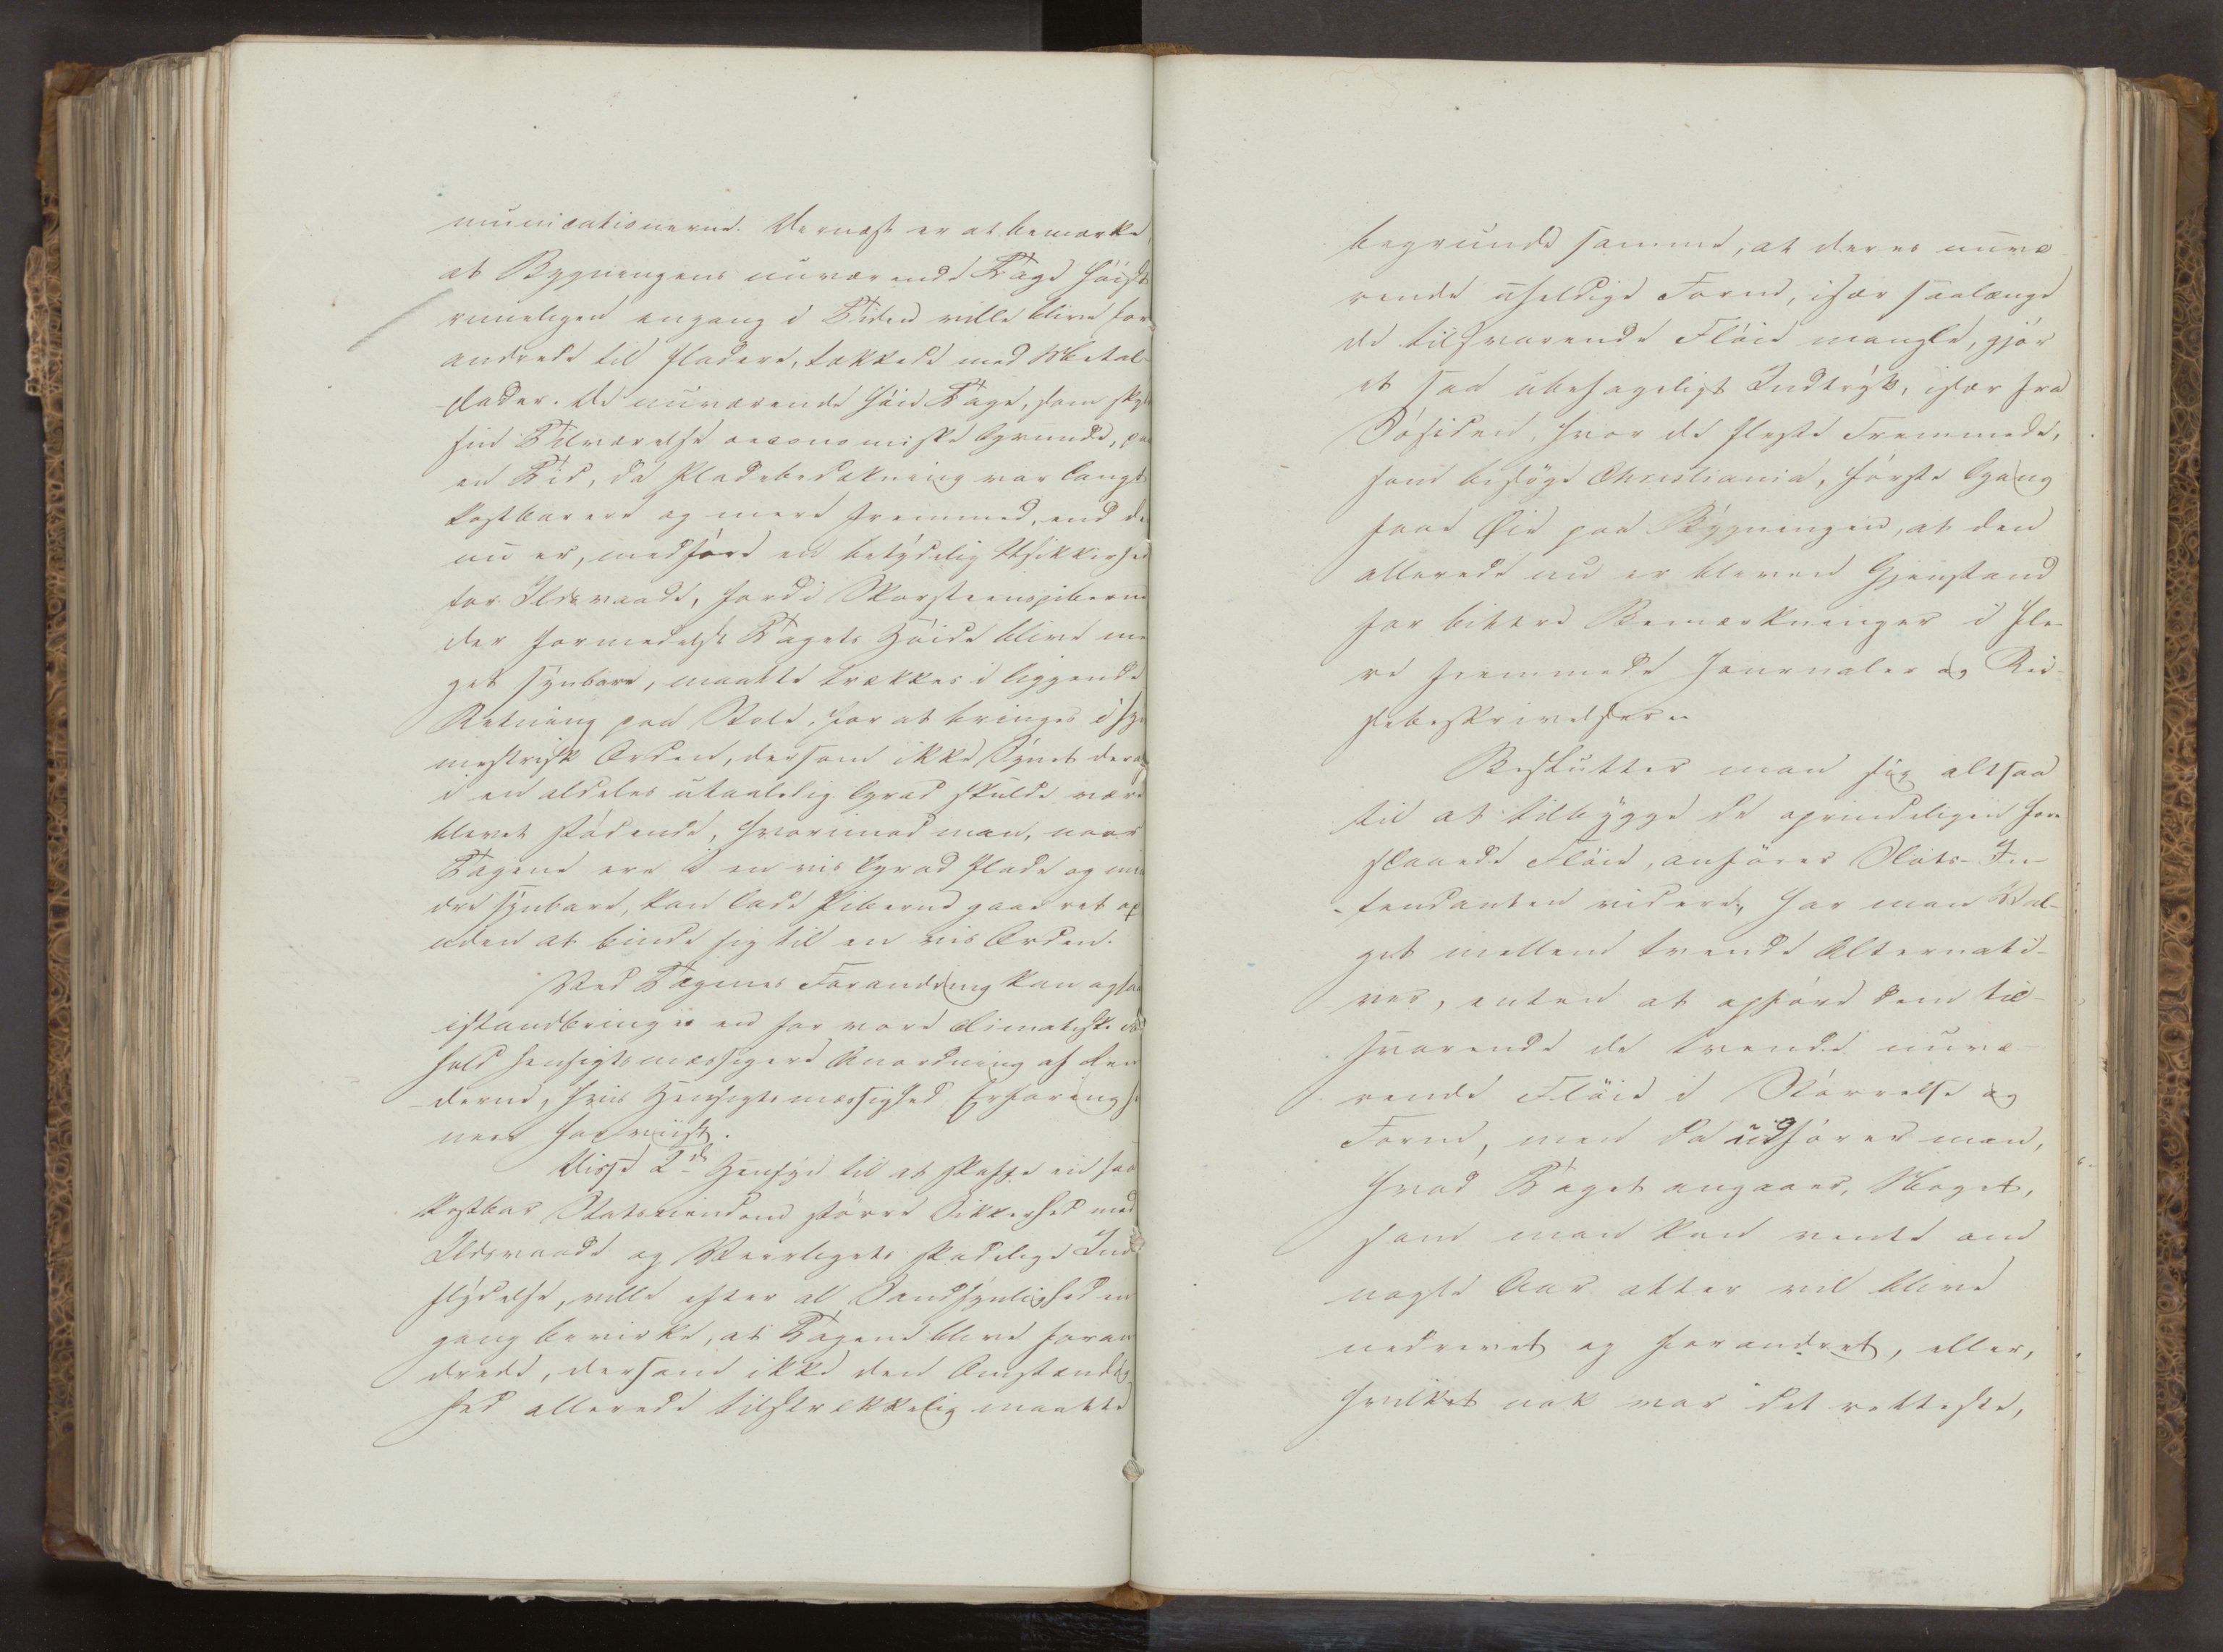 municationerne. Dernæst er at bemærke,
at Bygningens nuværende Tage høist
rimeligen engang i Tiden ville blive for-
andrede til fladere, tækkede med Metal-
plader. De nuværende høie Tage, som skylde
sin Tilværelse oeconomiske Grunde, paa
en Tid, da Pladebedækning var langt
kostbarere og mere fremmed, end den
nu er, medføre en betydelig Usikkerhed
for Ildsvaade, fordi Skorsteenspiberne
der formedelst Tagets Høide blive me-
get synbare, maatte trækkes i liggende
Retning paa Stole, for at bringes i sym-
metrisk Orden, dersom ikke Synet deraf
i en aldeles utaalelig Grad skulde være
blevet stødende, hvorimod man, naar
Tagene ere i en vis Grad flade og min-
dre synbare, kan lade Piberne gaae ret op
uden at binde sig til en vis Orden.
Ved Tagenes Forandring kan ogsaa
istandbringes en for vore climatiske For-
hold hensigtsmæssigere Anordning af Ren-
derne, hvis Hensigtsmæssighed Erfaringer-
nerne har viist.
Disse 2de Hensyn til at skaffe en saa
kostbar Statseiendom større Sikkerhed mod
Ildsvaade og Veirligets skadelige Ind-
flydelse, ville efter al Sandsynlighed en-
gang bevirke, at Tagene blive foran-
drede, dersom ikke den Omstændig-
hed allerede tilstrækkelig maatte
begrunde samme, at deres nuvæ-
rende uheldige Form, især saalænge
de tilsvarende Fløie mangle, gjør
et saa ubehageligt Indtryk, især fra
Søsiden, hvor de fleste Fremmede,
som besøge Christiania, første Gang
faae Øie paa Bygningen, at den
allerede nu er bleven Gjenstand
for bittre Bemærkninger i fle-
re fremmede Journaler og Rei-
sebeskrivelser.
Beslutter man sig altsaa
til at tilbygge de oprindeligen fore-
slaaede Fløie, anfører Slots-In-
tendanten videre, har man Val-
get mellem trende Alternati-
ver, enten at opføre dem til-
svarende de tvende nuvæ-
rende Fløie i Størrelse og
Form, men da udfører man,
hvad Taget angaaer, Noget,
som man kan vente om
nogle Aar atter vil blive
nedrevet og forandret, eller,
hvilket nok var det retteste,